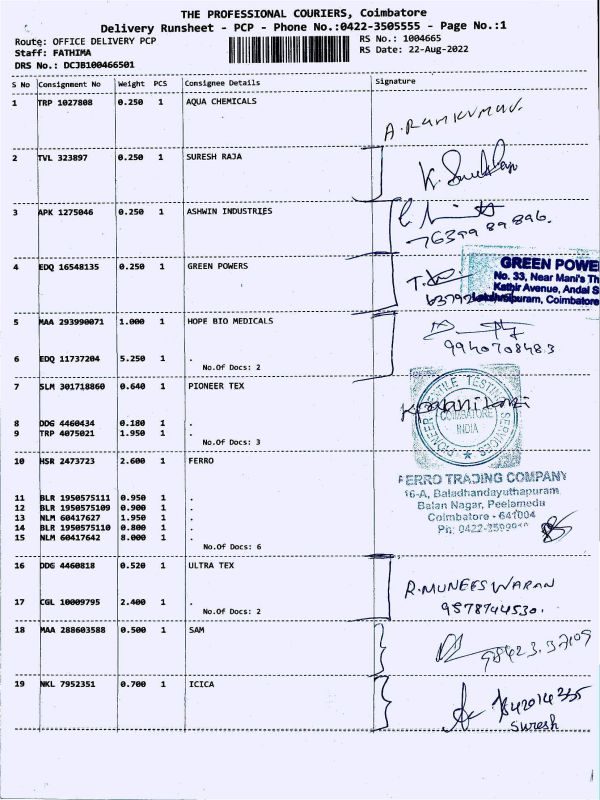 THE PROFESSIONAL COURIERS, Coimbatore
Delivery Runsheet - PCP - Phone No.:0422-3505555 - Page No.:1
Route: OFFICE DELIVERY PCP RS No.: 1004665
Staff: FATHIMA RS Date: 22-Aug-2022
DRS No.: DCJB100466501
S No Consignment No Weight PCS Consignee Details Signature
1 TRP 1027808 0.250 1 AQUA CHEMICALS
A.RAMKUMAR.
2 TVL 323897 0.250 1 SURESH RAJA
3 APK 1275046 0.250 1 ASHWIN INDUSTRIES
7639989896.
4 EDQ 16548135 0.250 1 GREEN POWERS
GREEN POWE
No. 33, Near Mani's Th
Kathir Avenue, Andal S
Lakshmipuram, Coimbatore
5 MAA 293990071 1.000 1 HOPE BIO MEDICALS
9940708483
6 EDQ 11737204 5.250 1 .
No.Of Docs: 2
7 SLM 301718860 0.640 1 PIONEER TEX
PIONEER TEXTILE TESTING SERVICES
COIMBATORE
INDIA
8 DDG 4460434 0.180 1 .
9 TRP 4075021 1.950 1 .
No.Of Docs: 3
10 HSR 2473723 2.600 1 FERRO
FERRO TRADING COMPANY
16-A, Baladhandayuthapuram
Balan Nagar, Peelamedu
Coimbatore - 641004
Ph: 0422-
11 BLR 1950575111 0.950 1 .
12 BLR 1950575109 0.900 1 .
13 NLM 60417627 1.950 1 .
14 BLR 1950575110 0.800 1 .
15 NLM 60417642 8.000 1 .
No.Of Docs: 6
16 DDG 4460818 0.520 1 ULTRA TEX
R.MUNEESWARAN
9578744530.
17 CGL 10009795 2.400 1 .
No.Of Docs: 2
18 MAA 288603588 0.500 1 SAM
98423.37109
19 NKL 7952351 0.700 1 ICICA
Suresh